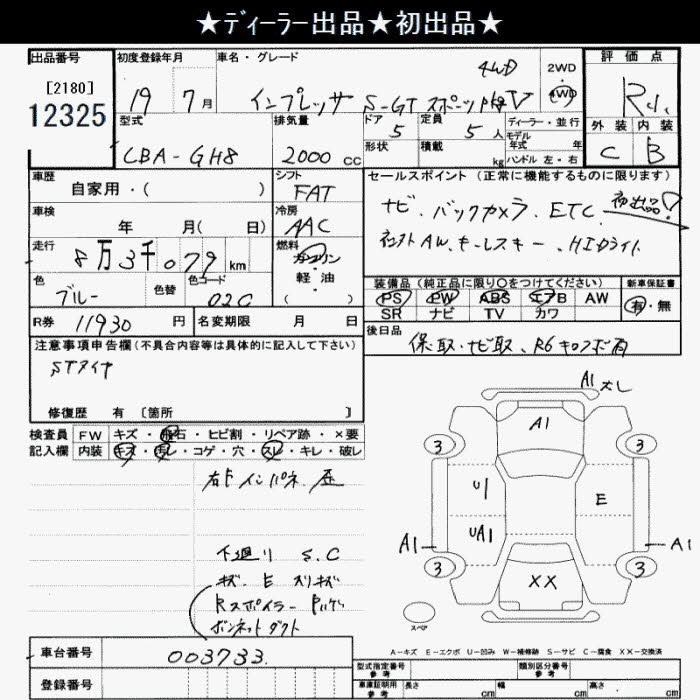 ★ディーラー出品★初出品★
出品番号 初度登録年月 車名・グレード 評価点
[2180] 12325
19 7月 インプレッサ S-GT スポーツ 4WD
2WD・4WD
R
外装 内装
C B
型式 排気量 ドア 定員 ディーラー・並行
CBA-GH8 2000cc 5 5人
形状 積載 kg
モデル年式 年
ハンドル 左・右
車歴 シフト セールスポイント (正常に機能するものに限ります)
自家用・( ) FAT
ナビ、バックカメラ、ETC、初出品!
車検 冷房
年 月( 日) AAC
AW、キーレスキー、HIDライト
走行 燃料
8万3千079km ガソリン 軽・油 ( )
装備品 (純正品に限り○をつけてください) 新車保証書
PS PW ABS エアB AW 有・無
SR ナビ TV カワ
色 色替 色コード
ブルー 02C
R券 11930円 名変期限 月 日
後日品
保、取、ナビ取、R6キロクボ有
注意事項申告欄(不具合内容等は具体的に記入して下さい)
STタイヤ
修復歴 有 [箇所 ]
検査員 FW キズ・飛石・ヒビ割・リペア跡・×要
記入欄 内装 キズ・汚レ・コゲ・穴・スレ・キレ・破レ
右F インパネ 歪
下廻り S、C
キズ E スリキズ
Rスポイラー
ボンネットダクト
A1 大し
A1
3 3
U1 E
UA1
A1 A1
3 3
XX
スペア
A-キズ E-エクボ U-凹み W-補修跡 S-サビ C-腐食 XX-交換済
車台番号 003733
登録番号
型式指定番号 参考 類別区分番号 参考
車庫証明用 参考 長さ cm 幅 cm 高さ cm